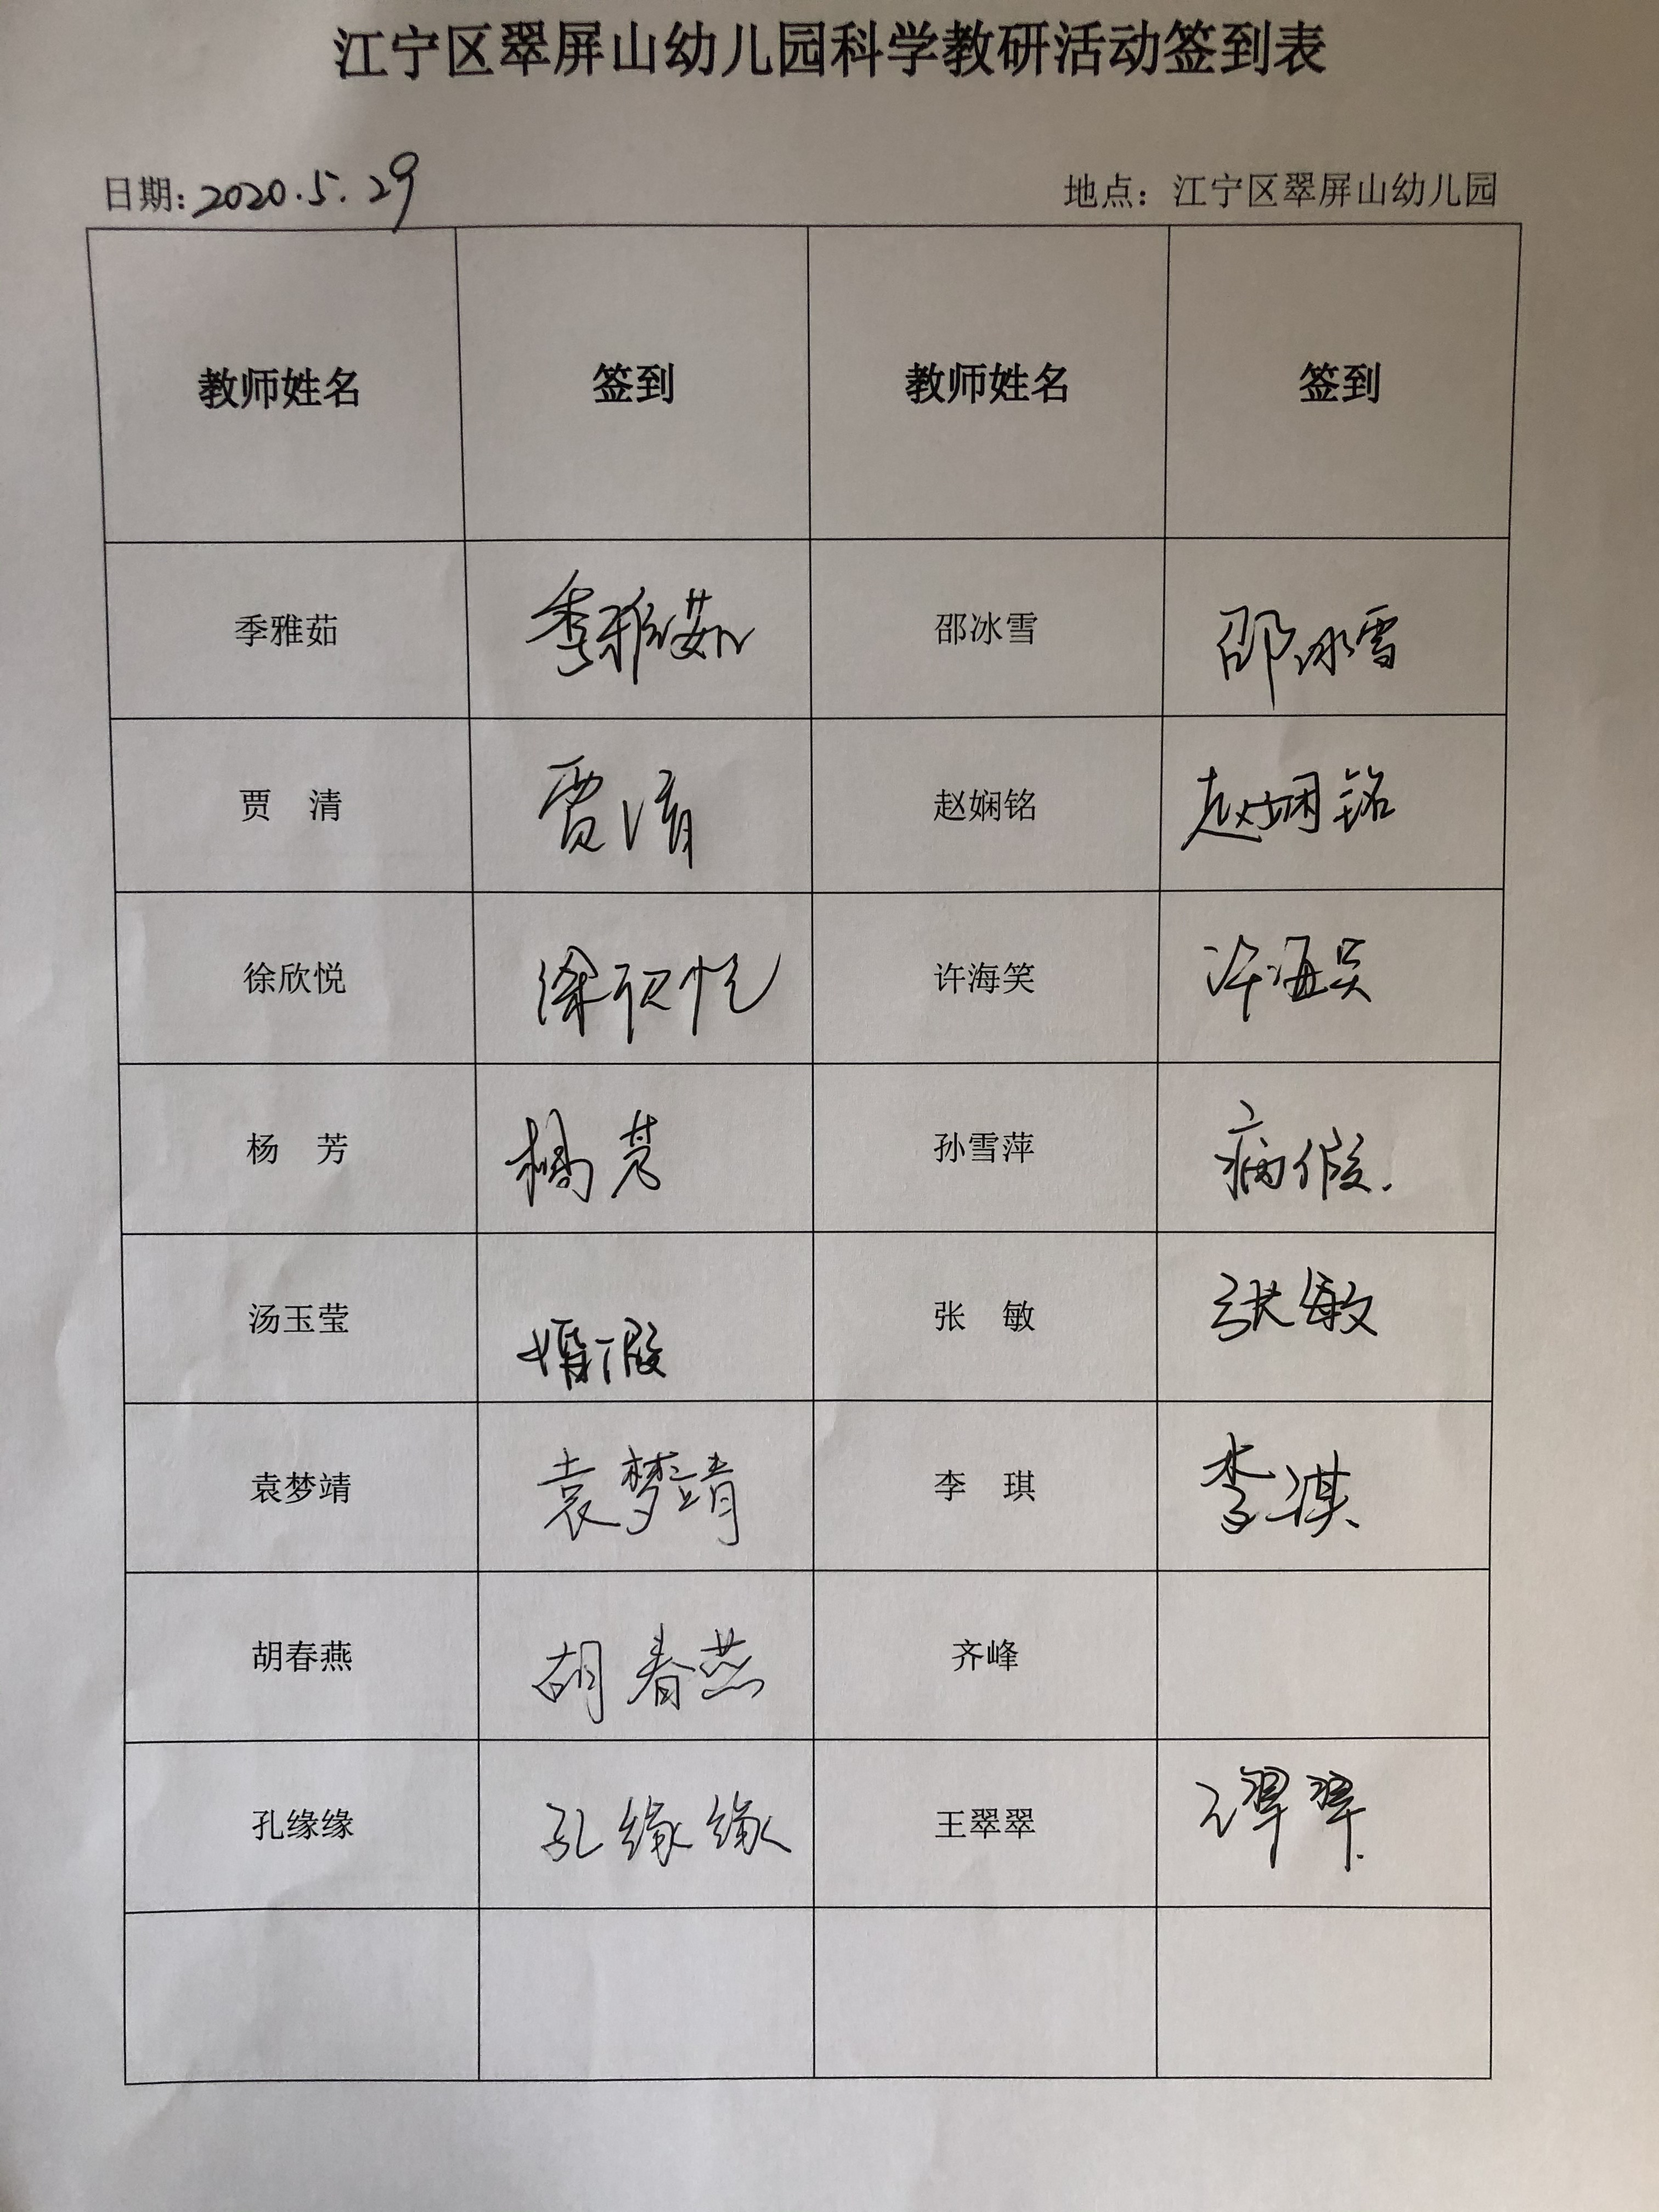 江宁区翠屏山幼儿园科学教研活动签到表
日期：2020.5.29 地点：江宁区翠屏山幼儿园
教师姓名 签到 教师姓名 签到
季雅茹 季雅茹 邵冰雪 邵冰雪
贾 清 贾清 赵娴铭 赵娴铭
徐欣悦 徐欣悦 许海笑 许海笑
杨 芳 杨芳 孙雪萍 病假.
汤玉莹 婚假 张 敏 张敏
袁梦靖 袁梦靖 李 琪 李淇
胡春燕 胡春燕 齐峰
孔缘缘 孔缘缘 王翠翠 王翠翠